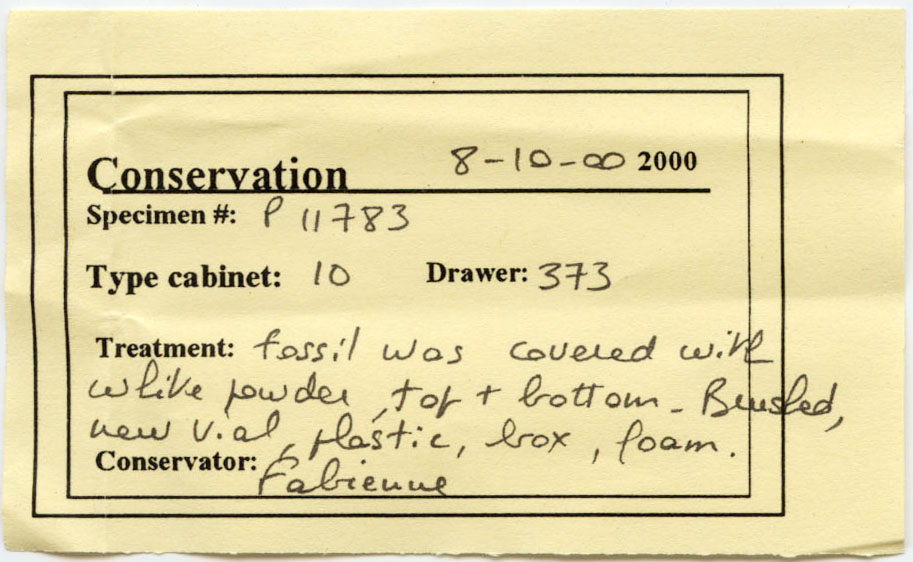 Conservation 8-10-00 2000
Specimen #: P 11783
Type cabinet: 10 Drawer: 373
Treatment: fossil was covered with
white powder, top + bottom - Brushed,
new vial, plastic, box, foam.
Conservator: Fabienne